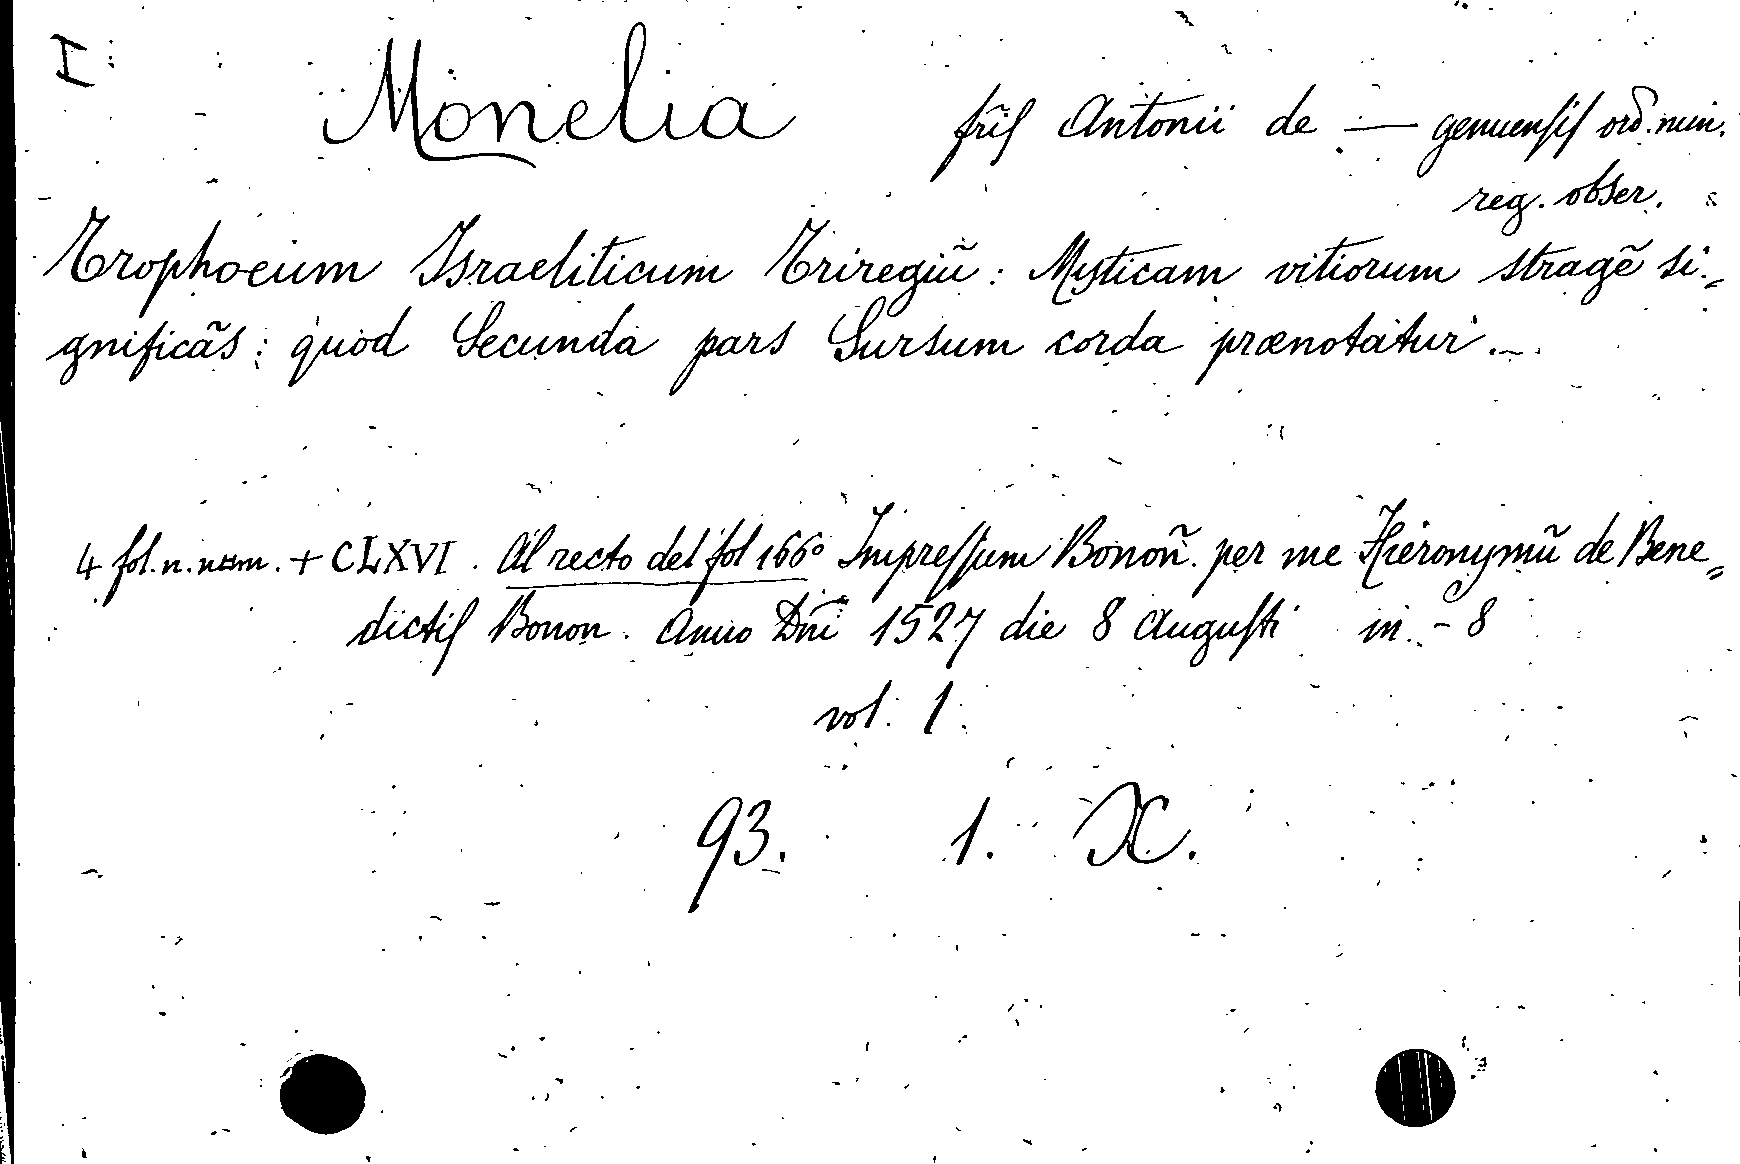 I
Monelia frı̃ſ Antonii de — genuenſiſ ord̃. min.
reg. obser.
Trophoeum Israeliticum Triregiũ: Mysticam vitiorum stragẽ si=
gnificãs: quod Secunda pars Sursum corda prænotatur.
4 fol. n. num. + CLXVI. Al recto del fol 166º Impreſſum Bonoñ. per me Hieronymũ de Bene=
dictiſ Bonon. Anno Dñi 1527 die 8 Auguſti in - 8
vol. 1.
93. 1. X.